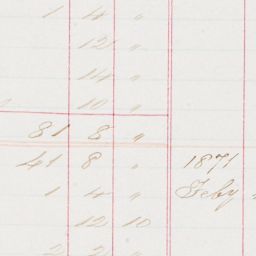 1 4 "
12 "
14 "
10 "
81 8 "
41 8 " 1871
1 4 " Feby
12 10
2 2 "